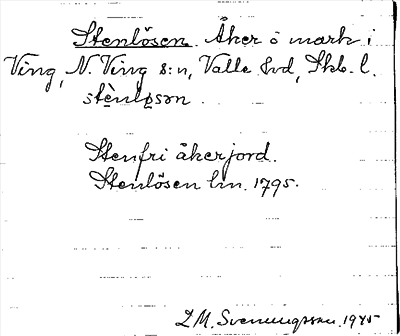 Stenlösen. Åker o mark i
Ving, N. Ving s:n, Valle hd, Skb. l.
stènløsən.
Stenfri åkerjord.
Stenlösen lm. 1795.
I.M. Svenungsson. 1945